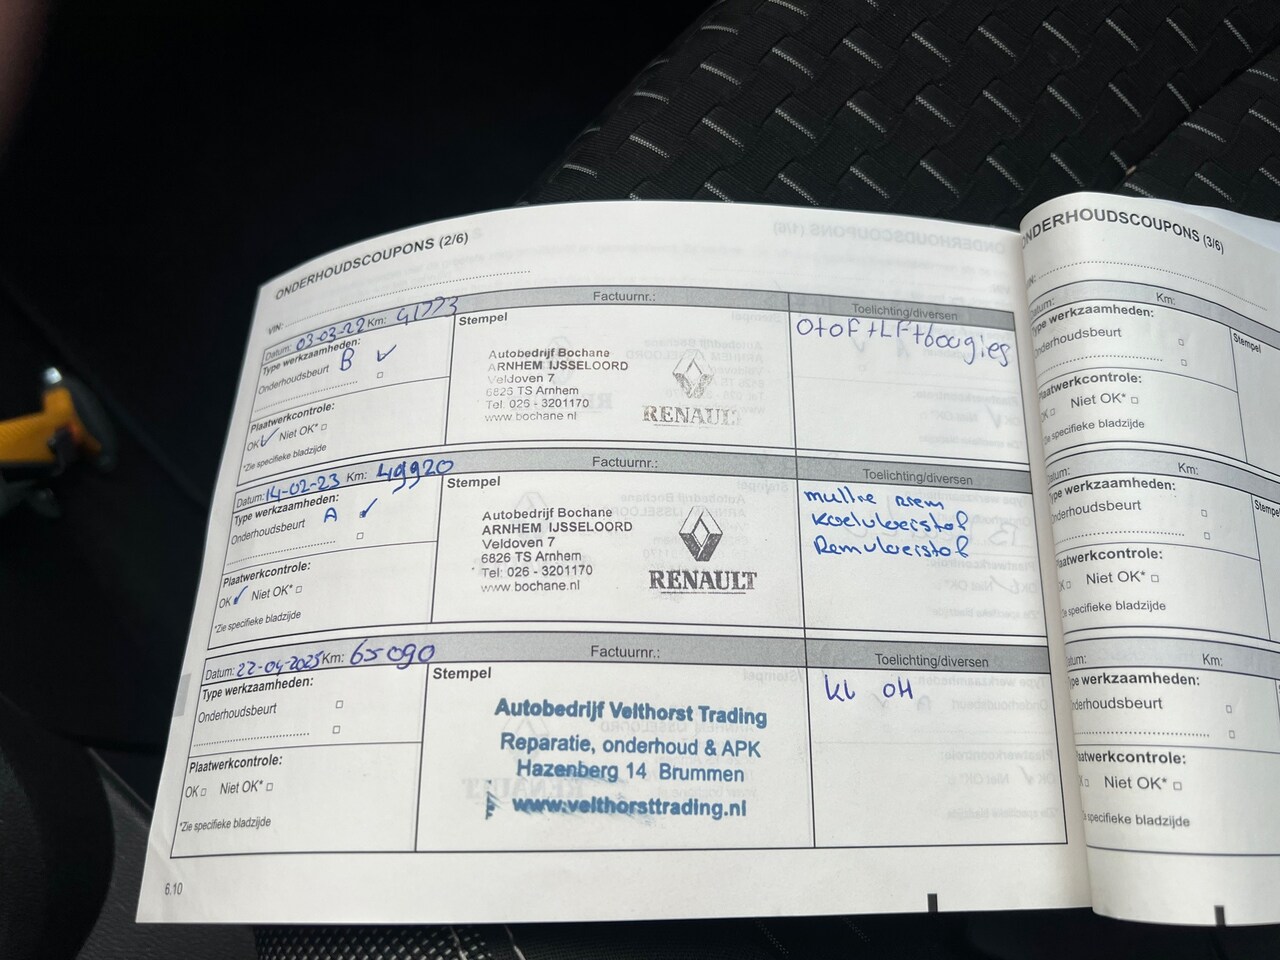 ONDERHOUDSCOUPONS (2/6)
VIN:
Datum: 03-03-22 Km: 41773
Factuurnr.:
Toelichting/diversen
Type werkzaamheden:
Onderhoudsbeurt B ✓
Plaatwerkcontrole:
OK ✓ Niet OK*
*Zie specifieke bladzijde
Stempel
Autobedrijf Bochane
ARNHEM IJSSELOORD
Veldoven 7
6826 TS Arnhem
Tel: 026 - 3201170
www.bochane.nl
RENAULT
O+OF+LF+bougies
Datum: 14-02-23 Km: 49920
Factuurnr.:
Toelichting/diversen
Type werkzaamheden:
Onderhoudsbeurt A ✓
Plaatwerkcontrole:
OK ✓ Niet OK*
*Zie specifieke bladzijde
Stempel
Autobedrijf Bochane
ARNHEM IJSSELOORD
Veldoven 7
6826 TS Arnhem
Tel: 026 - 3201170
www.bochane.nl
RENAULT
riem
Koelvloeistof
Remvloeistof
Datum: 22-04-2025 Km: 65090
Factuurnr.:
Toelichting/diversen
Type werkzaamheden:
Onderhoudsbeurt
Plaatwerkcontrole:
OK Niet OK*
*Zie specifieke bladzijde
Stempel
Autobedrijf Velthorst Trading
Reparatie, onderhoud & APK
Hazenberg 14 Brummen
www.velthorsttrading.nl
kl OH
6.10
ONDERHOUDSCOUPONS (3/6)
VIN:
Datum: Km:
Type werkzaamheden:
Onderhoudsbeurt
Stempel
Plaatwerkcontrole:
OK Niet OK*
Zie specifieke bladzijde
Datum: Km:
Type werkzaamheden:
Onderhoudsbeurt
Stemp
Plaatwerkcontrole:
Niet OK*
Zie specifieke bladzijde
Km:
Type werkzaamheden:
Onderhoudsbeurt
Plaatwerkcontrole:
Niet OK*
Zie specifieke bladzijde